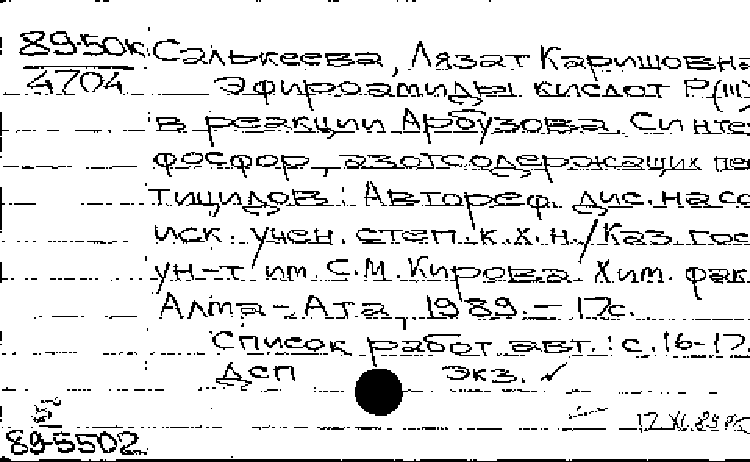 89-50к Салькеева, Лязат Каришовна
4704 Эфироамиды кислот Р(III)
в реакции Арбузова. Синте
фосфор, азотсодержащих пе
тицидов: Автореф. дис. на со
иск. учен. степ. к.х.н. / Каз. гос.
ун-т им. С.М. Кирова. Хим. фак.
Алма-Ата, 1989. - 17с.
Список работ авт.: с.16-17.
ДСП экз. ✓
89-5502